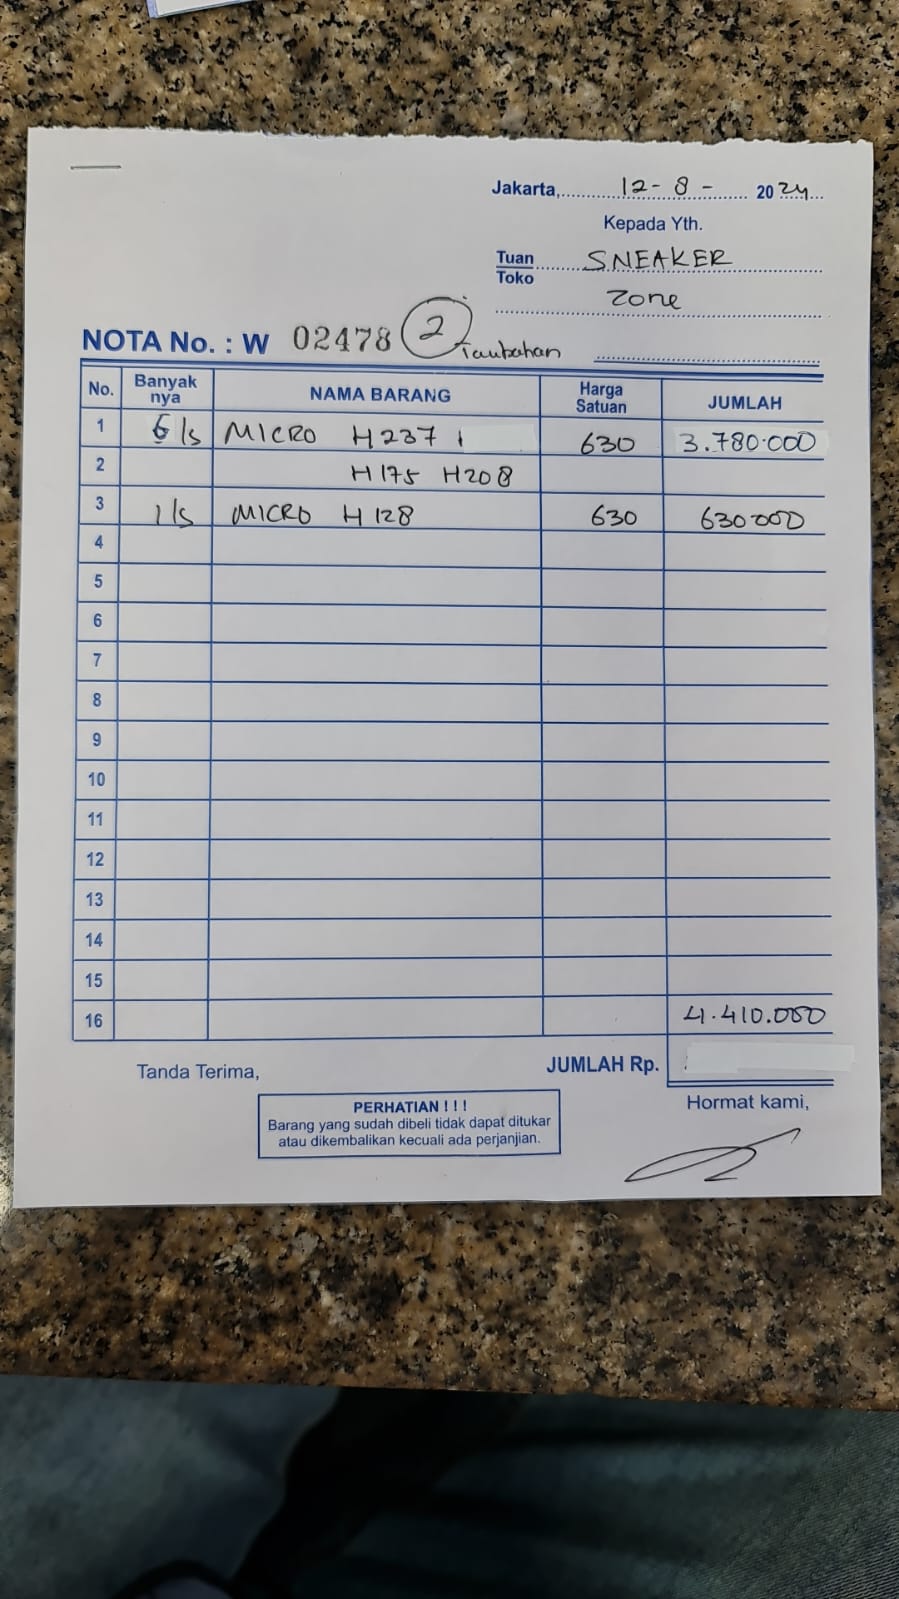 Jakarta, 12-8- 2024
Kepada Yth.
Tuan SNEAKER
Toko Zone
NOTA No. : W 02478 2 Tambahan
No. Banyak nya NAMA BARANG Harga Satuan JUMLAH
1 6/s MICRO H237 630 3.780.000
2 H175 H208
3 1/s MICRO H128 630 630 000
4
5
6
7
8
9
10
11
12
13
14
15
16 4.410.000
Tanda Terima, JUMLAH Rp.
Hormat kami,
PERHATIAN ! ! !
Barang yang sudah dibeli tidak dapat ditukar
atau dikembalikan kecuali ada perjanjian.